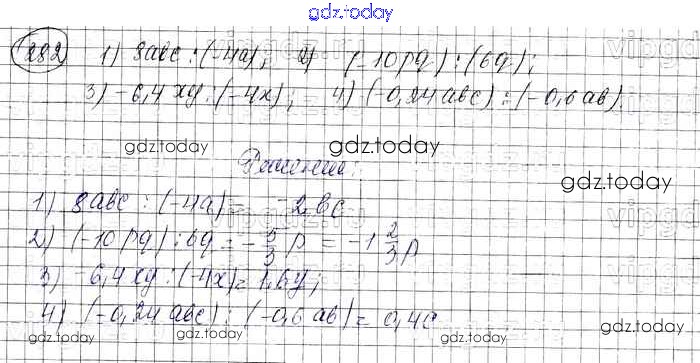 gdz.today
282 1) 8abc : (-4a); 2) (-10pq) : (6q);
3) -6,4xy : (-4x); 4) (-0,24abc) : (-0,6ab).
gdz.today gdz.today
Решение:
gdz.today
1) 8abc : (-4a) = -2bc
2) (-10pq) : 6q = -5/3 p = -1 2/3 p
3) -6,4xy : (-4x) = 1,6y;
4) (-0,24abc) : (-0,6ab) = 0,4c
gdz.today gdz.today gdz.today